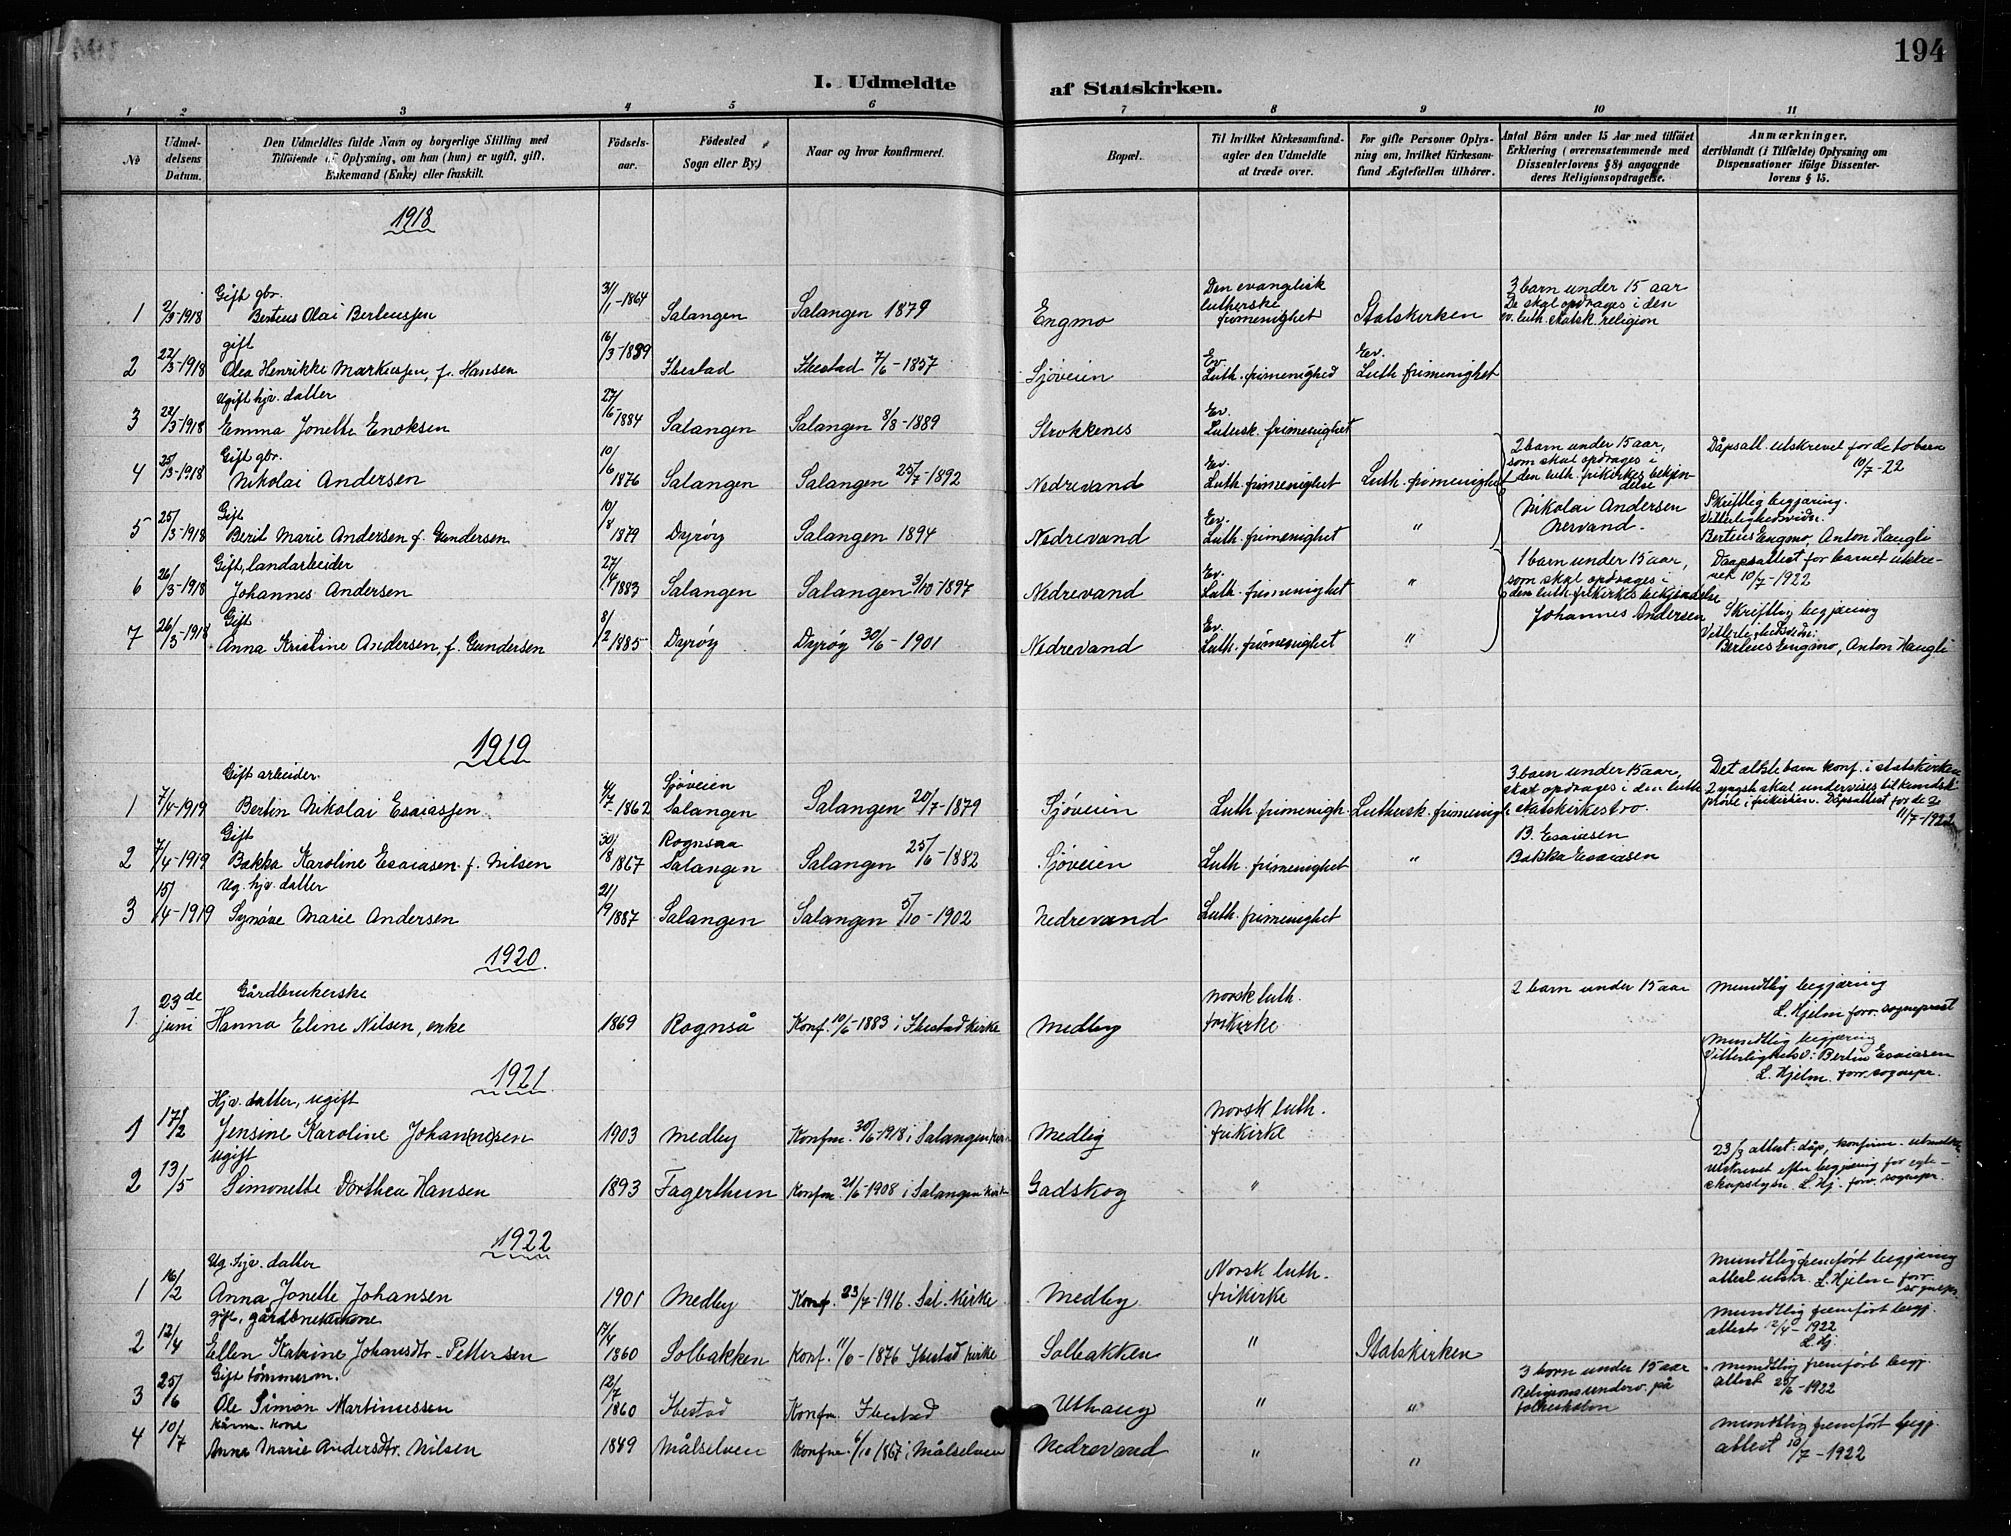 194
I. Udmeldte af Statskirken.
1 2 3 4 5 6 7 8 9 10 11
No
Udmeldelsens Datum.
Den Udmeldtes fulde Navn og borgerlige Stilling med Tilføiende af Oplysning, om han (hun) er ugift, gift, Enkemand (Enke) eller fraskilt.
Fødselsaar.
Fødested Sogn eller By.)
Naar og hvor konfirmeret.
Bopæl.
Til hvilket Kirkesamfund agter den Udmeldte at træde over.
For gifte Personer Oplysning om, hvilket Kirkesamfund Ægtefællen tilhører.
Antal Börn under 15 Aar med tilföiet Erklæring (overensstemmende med Dissenterlovens § 8) angaaende deres Religionsopdragelse.
Anmærkninger, deriblandt (i Tilfælde) Oplysning om Dispensationer ifölge Dissenterlovens § 15.
1918
Gift gbr.
1 2/3-1918 Berteus Olai Berteussen 31/1-1864 Salangen Salangen 1879 Engmo Den evangelisk lutherske frimenighet Statskirken 3 barn under 15 aar De skal opdrages i den ev. luth. statsk. religion
gift
2 22/3-1918 Olea Henrikke Markussen, f. Hansen 16/3-1839 Ibestad Ibestad 7/6-1857 Sjøveien Ev. Luth. frimenighed Ev. Luth. frimenighet
Ugift hjv. datter
3 22/3-1918 Emma Jonette Enoksen 27/6-1884 Salangen Salangen 8/8-1889 Strokkenes Ev. Lutersk. frimenighet
Gift gbr.
4 25/3-1918 Nikolai Andersen 10/6 1876 Salangen Salangen 25/7-1892 Nedrevand Ev. Luth. frimenighet Luth. frimenighet 2 barn under 15 aar, som skal opdrages i den luth. frikirkes bekjendelse Dåpsatt. utskrevet for de to barn 10/7-22
Gift
5 25/3-1918 Berit Marie Andersen f. Gundersen 10/8 1879 Dyrøy Salangen 1894 Nedrevand Ev. Luth. frimenighet " Nikolai Andersen Nervand. Skriftlig begjæring. Vitterlighedsvidn. Berteus Engmo, Anton Haugli
Gift, landarbeider
6 26/3-1918 Johannes Andersen 27/4 1883 Salangen Salangen 3/10-1897 Nedrevand Ev. Luth. frimenighet " 1 barn under 15 aar, som skal opdrages i den luth. frikirkes bekjendelse Daapsattest for barnet utskrevet 10/7-1922
Gift
7 26/3-1918 Anna Kristine Andersen, f. Gundersen 8/2 1885 Dyrøy Dyrøy 30/6-1901 Nedrevand Ev. Luth. frimenighet " Johannes Andersen Skriftlig begjæring Vitterlighedsvidn: Berteus Engmo, Anton Haugli
1919
Gift arbeider.
1 7/4-1919 Bertin Nikolai Esaiassen 4/7-1862 Sjøveien Salangen Salangen 20/7-1879 Sjøveien Luth. frimenigh. Luthersk. frimenigh. 3 barn under 15 aar, skal opdrages i den luth. statskirkes tro. Det ældste barn konf. i statskirken 2 yngsk skal undervises til kundsk. prøve i frikirken. Dåpsattest for de 2 11/7-1922
Gift
2 7/4-1919 Bakka Karoline Esaiasen f. Nilsen 30/8 1867 Rognsaa Salangen Salangen 25/6-1882 Sjøveien Luth. frimenighet " B. Esaiasen Bakka Esaiasen
Ug. hjv. datter
3 15/4-1919 Synøve Marie Andersen 21/9 1887 Salangen Salangen 5/10-1902 Nedrevand Luth. frimenighet
1920
Gårdbrukerske
1 23de juni Hanna Eline Nilsen, enke 1869 Rognså Konf. 10/6-1883 i Ibestad kirke Medby Norsk luth. frikirke 2 barn under 15 aar Mundtlig begjæring L. Hjelm forv. sogneprest
1921
Hjv. datter, ugift
1 17/2 Jensine Karoline Johan(ne)sen 1903 Medby Konfm. 30/6-1918 i Salangen kirke Medby Norsk luth. frikirke Mundtlig begjæring Vitterlighetsv: Bertin Esaiasen L. Hjelm. forv. sognepr.
Ugift
2 13/5 Simonette Dorthea Hansen 1893 Fagerthun Konfm. 21/6-1908 i Salangen kirke Gadskog " 23/3 attest: dåp, konfirm. utmeldt. utskrevet efter begjæring for egteskapslysn. L. Hj. forv. sognepr.
1922
Ug. hjv. datter
1 16/2 Anna Jonette Johansen 1901 Medby Konf. 23/7-1916. Sal. kirke Medby Norsk luth. frikirke Mundtlig fremført begjæring attest utskr. L. Hjelm forv. sognepr.
gift, gårdbrukerkone
2 12/4 Ellen Katrine Johansdtr-Pettersen 17/4 1860 Solbakken Konf. 11/6-1876 Ibestad kirke Solbakken " Statskirken Mundtlig fremført begj. attest 12/4-1922 L. Hj.
Gift tømmerm.
3 25/6 Ole Simon Martinussen 12/7 1860 Ibestad Konfm. Ibestad Uthaug " " 3 born under 15 aar Religionsunderv. på folkeskolen Mundtlig fremført begj. attest 25/6-1922
kone
4 10/7 Anna Marie Andersdtr. Nilsen 1849 Målselven Konfm. 6/10 1867 i Målselven Nedrevand " " Mundtlig fremført begj. attest 10/7-1922